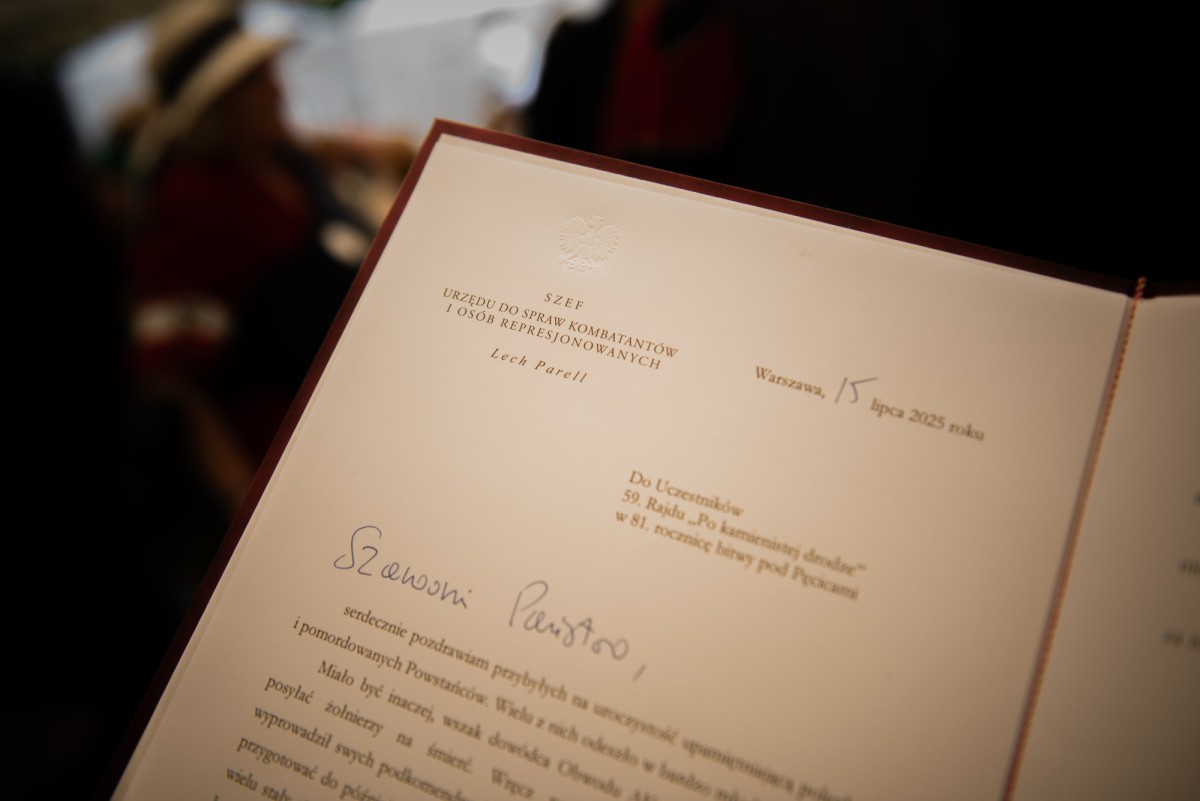 SZEF
URZĘDU DO SPRAW KOMBATANTÓW
I OSÓB REPRESJONOWANYCH
Lech Parell
Warszawa, 15 lipca 2025 roku
Do Uczestników
59. Rajdu „Po kamienistej drodze”
w 81. rocznicę bitwy pod Pęcicami
Szanowni Państwo,
serdecznie pozdrawiam przybyłych na uroczystość upamiętniającą
i pomordowanych Powstańców. Wielu z nich odeszło w bardzo
Miało być inaczej, wszak dowódca Obwodu
posyłać żołnierzy na śmierć. Wręcz
wyprowadził swych podkomendn
przygotować do późnie
wielu stały